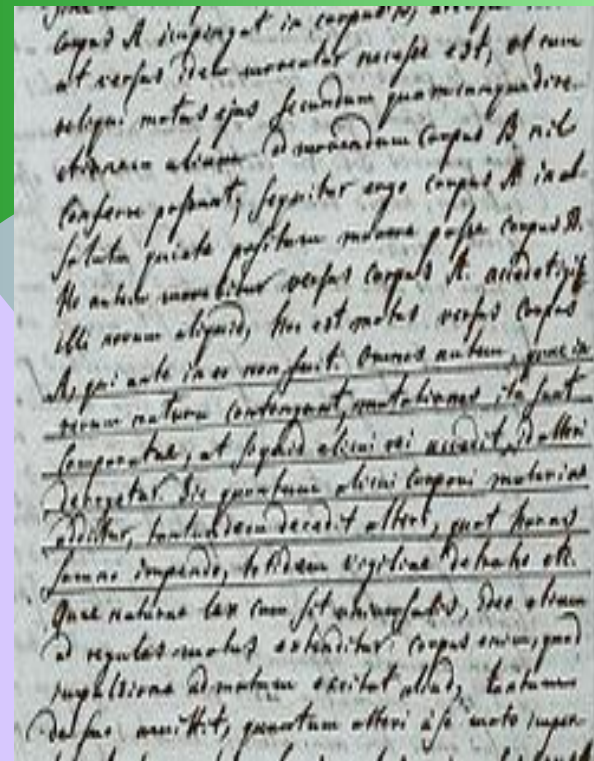 corpus A impingat in corpus
ut versus idem moveatur necesse est, et cum
reliqui motus ejus secundum quamcunque dire-
ctionem aliam ad movendum corpus B nil
conferre possunt; sequitur ergo corpus B in ab-
soluta quiete positum movere posse corpus A.
Hoc autem movebitur versus corpus B. accedet igitur
illi novum aliquid, hoc est motus versus corpus
B, qui ante in eo non fuit. Omnes autem, quae in
rerum natura contingunt, mutationes ita sunt
comparatae, ut siquid alicui rei accedit, id alteri
derogetur. Sic quantum alicui corpori materiae
additur, tantundem decedit alteri, quot horas
somno impendo, totidem vigiliae detraho etc.
Quae naturae lex cum sit universalis, ideo etiam
ad regulas motus extenditur: corpus enim, quod
impulsione ad motum excitat aliud, tantum
de suo amittit, quantum alteri à se moto imper-